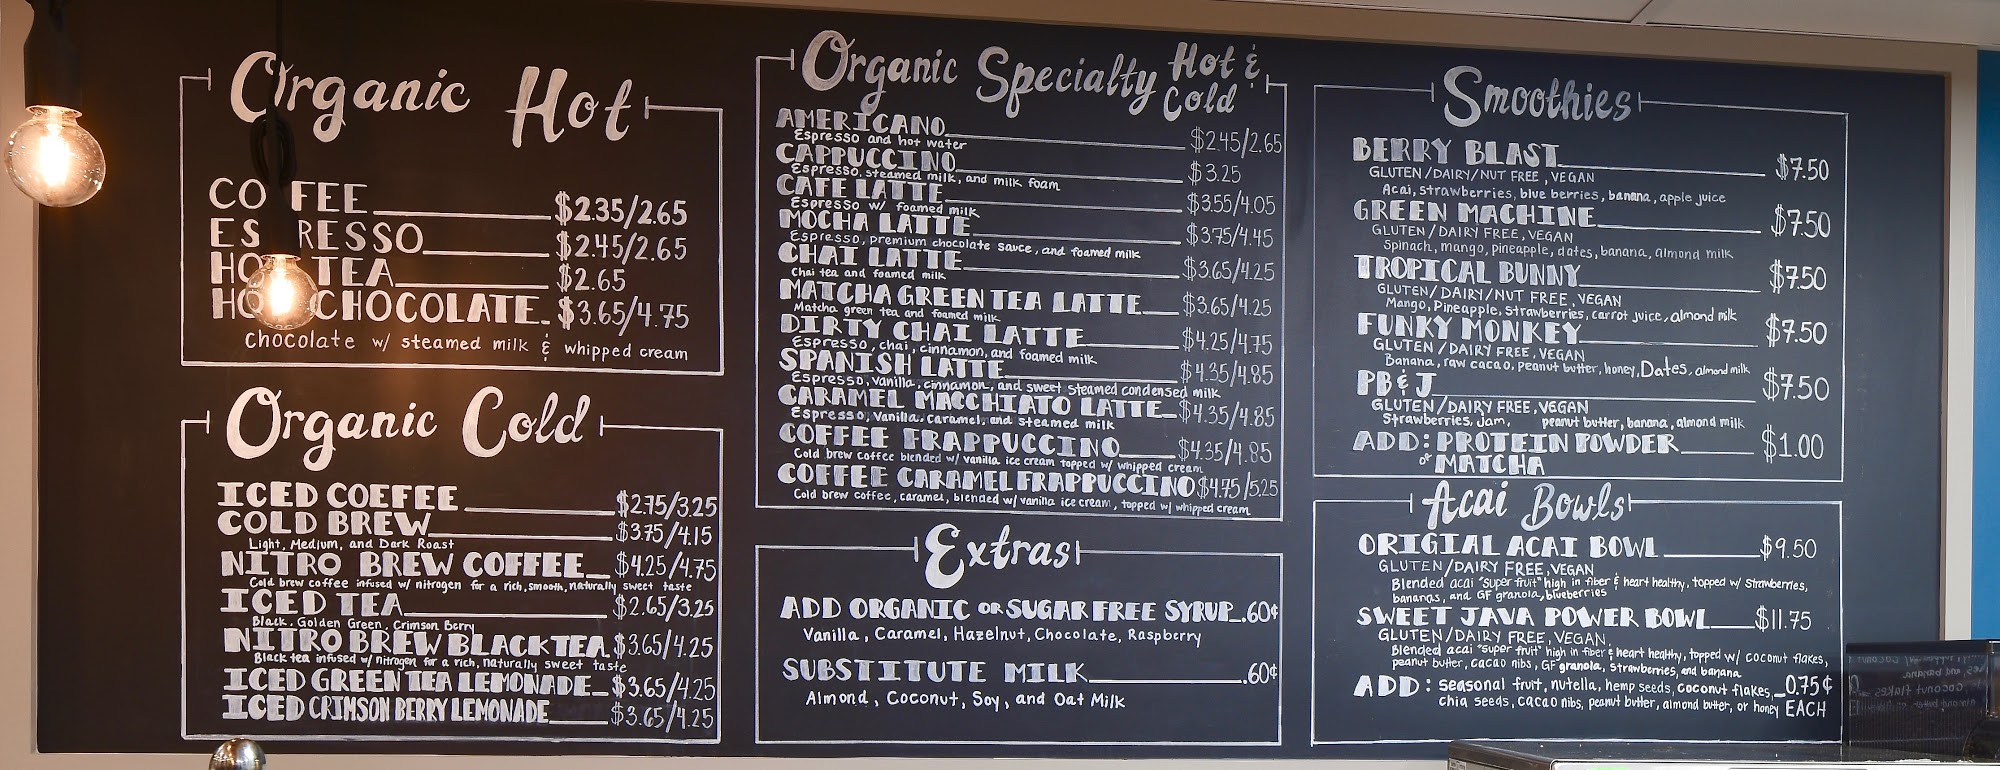 Organic Hot
COFFEE $2.35/2.65
ESPRESSO $2.45/2.65
HOT TEA $2.65
HOT CHOCOLATE $3.65/4.75
Chocolate w/ steamed milk & whipped cream
Organic Cold
ICED COEFEE $2.75/3.25
COLD BREW $3.75/4.15
Light, Medium, and Dark Roast
NITRO BREW COFFEE $4.25/4.75
Cold brew coffee infused w/ nitrogen for a rich, smooth, naturally sweet taste
ICED TEA $2.65/3.25
Black, Golden Green, Crimson Berry
NITRO BREW BLACK TEA $3.65/4.25
Black tea infused w/ nitrogen for a rich, naturally sweet taste
ICED GREEN TEA LEMONADE $3.65/4.25
ICED CRIMSON BERRY LEMONADE $3.65/4.25
Organic Specialty Hot & Cold
AMERICANO $2.45/2.65
Espresso and hot water
CAPPUCCINO $3.25
Espresso, steamed milk, and milk foam
CAFE LATTE $3.55/4.05
Espresso w/ foamed milk
MOCHA LATTE $3.75/4.45
Espresso, premium chocolate sauce, and foamed milk
CHAI LATTE $3.65/4.25
Chai tea and foamed milk
MATCHA GREEN TEA LATTE $3.65/4.25
Matcha green tea and foamed milk
DIRTY CHAI LATTE $4.25/4.75
Espresso, chai, cinnamon, and foamed milk
SPANISH LATTE $4.35/4.85
Espresso, vanilla, cinnamon, and sweet steamed condensed milk
CARAMEL MACCHIATO LATTE $4.35/4.85
Espresso, Vanilla, Caramel, and steamed milk
COFFEE FRAPPUCCINO $4.35/4.85
Cold brew coffee blended w/ vanilla ice cream topped w/ whipped cream
COFFEE CARAMEL FRAPPUCCINO $4.75/5.25
Cold brew coffee, caramel, blended w/ vanilla ice cream, topped w/ whipped cream
Extras
ADD ORGANIC OR SUGAR FREE SYRUP .60¢
Vanilla, Caramel, Hazelnut, Chocolate, Raspberry
SUBSTITUTE MILK .60¢
Almond, Coconut, Soy, and Oat Milk
Smoothies
BERRY BLAST $7.50
GLUTEN/DAIRY/NUT FREE, VEGAN
Acai, strawberries, blue berries, banana, apple juice
GREEN MACHINE $7.50
GLUTEN/DAIRY FREE, VEGAN
Spinach, mango, pineapple, dates, banana, almond milk
TROPICAL BUNNY $7.50
GLUTEN/DAIRY/NUT FREE, VEGAN
Mango, Pineapple, strawberries, carrot juice, almond milk
FUNKY MONKEY $7.50
GLUTEN/DAIRY FREE, VEGAN
Banana, raw cacao, peanut butter, honey, Dates, almond milk
PB & J $7.50
GLUTEN/DAIRY FREE, VEGAN
Strawberries, Jam, peanut butter, banana, almond milk
ADD: PROTEIN POWDER $1.00
or MATCHA
Acai Bowls
ORIGIAL ACAI BOWL $9.50
GLUTEN/DAIRY FREE, VEGAN
Blended acai "super fruit" high in fiber & heart healthy, topped w/ strawberries,
bananas, and GF granola, blueberries
SWEET JAVA POWER BOWL $11.75
GLUTEN/DAIRY FREE, VEGAN,
Blended acai "super fruit" high in fiber & heart healthy, topped w/ coconut flakes,
peanut butter, cacao nibs, GF granola, strawberries, and banana
ADD: seasonal fruit, nutella, hemp seeds, coconut flakes, 0.75¢
chia seeds, cacao nibs, peanut butter, almond butter, or honey EACH